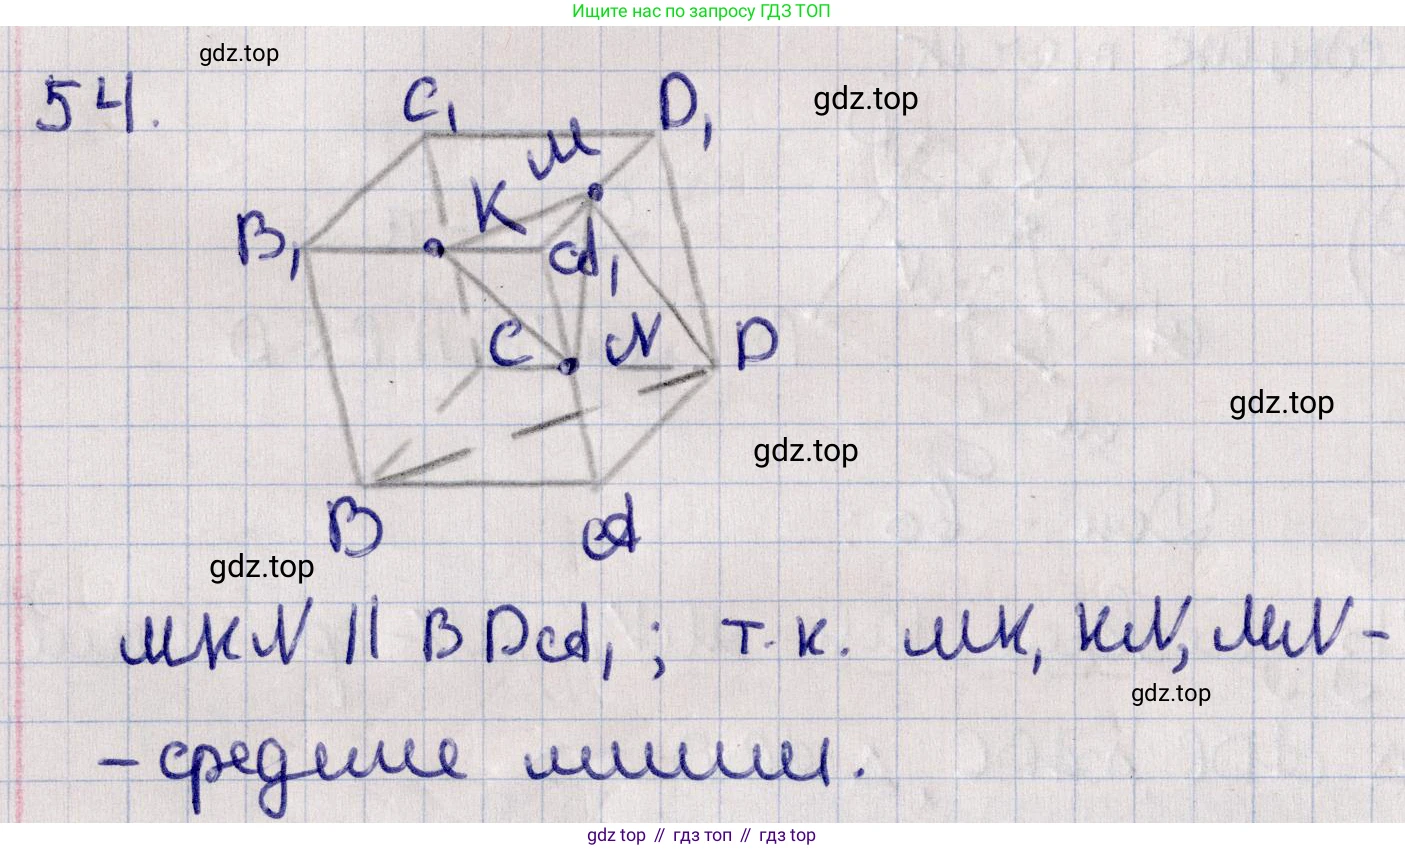 Ищите нас по запросу ГДЗ ТОП
gdz.top
54.
C₁
D₁
gdz.top
M
K
B₁
A₁
C
N
D
gdz.top
gdz.top
B
A
gdz.top
MKN || BDA₁; т.к. MK, KN, MN -
gdz.top
- средние линии.
gdz top // гдз топ // гдз top